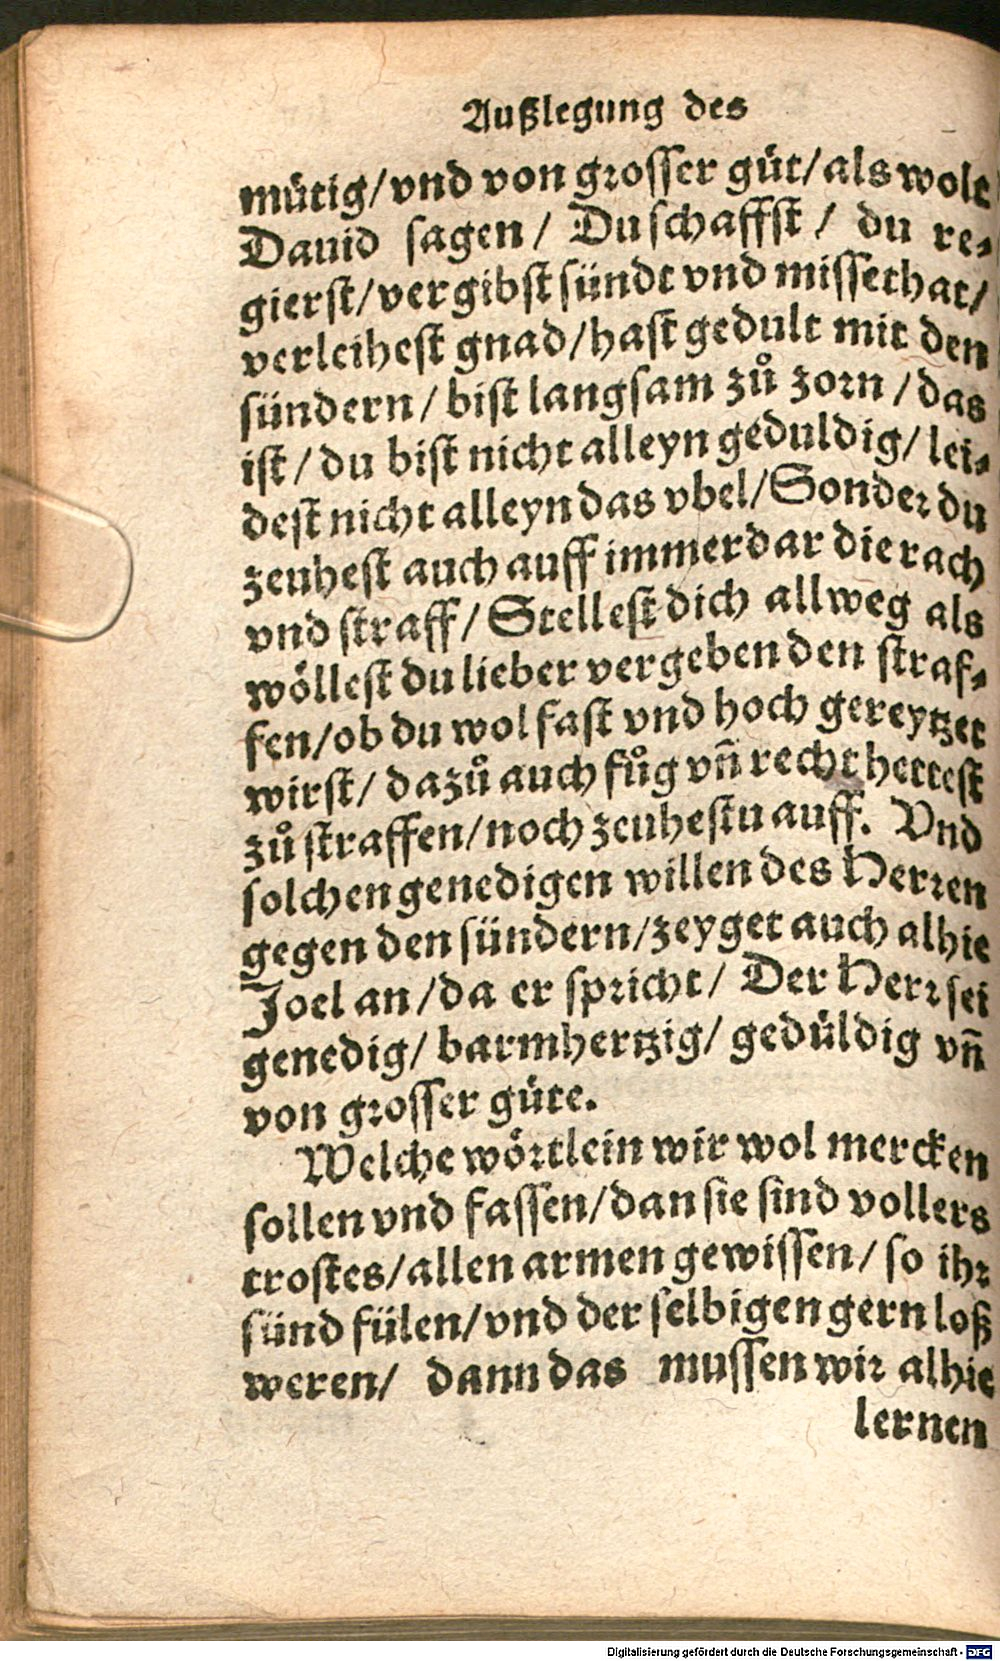 Außlegung des
mütig/vnd von grosser güt/als wolt
Dauid sagen/ Du schaffst/ du re-
gierst/vergibst sündt vnd missethat/
verleihest gnad/hast gedult mit den
sündern/ bist langsam zů zorn/das
ist/ du bist nicht alleyn geduldig/ lei-
dest nicht alleyn das vbel/Sonder du
zeuhest auch auff immerdar die rach
vnd straff/ Stellest dich allweg als
wöllest du lieber vergeben den straf-
fen/ob du wol fast vnd hoch gereytzet
wirst/ dazů auch fůg vñ recht hettest
zů straffen/noch zeuhestu auff. Vnd
solchen genedigen willen des Herren
gegen den sündern/zeyget auch alhie
Joel an/da er spricht/ Der Herr sei
genedig/ barmhertzig/ gedüldig vñ
von grosser güte.
Welche wörtlein wir wol mercken
sollen vnd fassen/dan sie sind vollers
trostes/allen armen gewissen/ so ihr
sünd fülen/vnd der selbigen gern loß
weren/ dann das mussen wir alhie
lernen
Digitalisierung gefördert durch die Deutsche Forschungsgemeinschaft - DFG